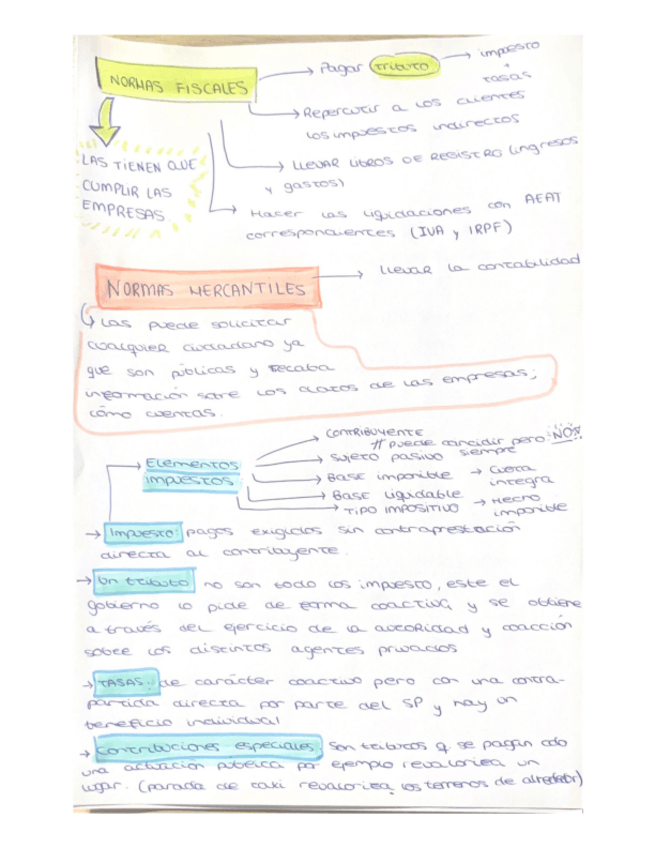 NORMAS FISCALES
Pagar tributo → impuesto
+
tasas
Repercutir a los clientes
los impuestos indirectos
LAS TIENEN QUE
CUMPLIR LAS
EMPRESAS
LLEVAR LIBROS DE REGISTRO (ingresos
y gastos)
Hacer las liquidaciones con AEAT
correspondientes (IVA y IRPF)
NORMAS MERCANTILES
llevar la contabilidad
Las puede solicitar
cualquier ciudadano ya
que son públicas y recaba
información sobre los datos de las empresas;
cómo cuentas.
Elementos
impuestos
CONTRIBUYENTE
# puede coincidir pero NO
Sujeto pasivo siempre
Base imponible → Cuota
integra
Base liquidable
TIPO IMPOSITIVO → Hecho
imponible
→ Impuesto: pagos exigidos sin contraprestación
directa al contribuyente.
→ Un tributo no son todo los impuesto, este el
gobierno lo pide de forma coactiva, y se obtiene
a través del ejercicio de la autoridad y coacción
sobre los distintos agentes privados
→ TASAS: de carácter coactivo pero con una contra-
partida directa por parte del SP y hay un
beneficio individual
→ Contribuciones especiales: Son tributos q se pagan cdo
una actuación pública por ejemplo revaloriza un
lugar. (parada de taxi revaloriza los terrenos de alrededor)